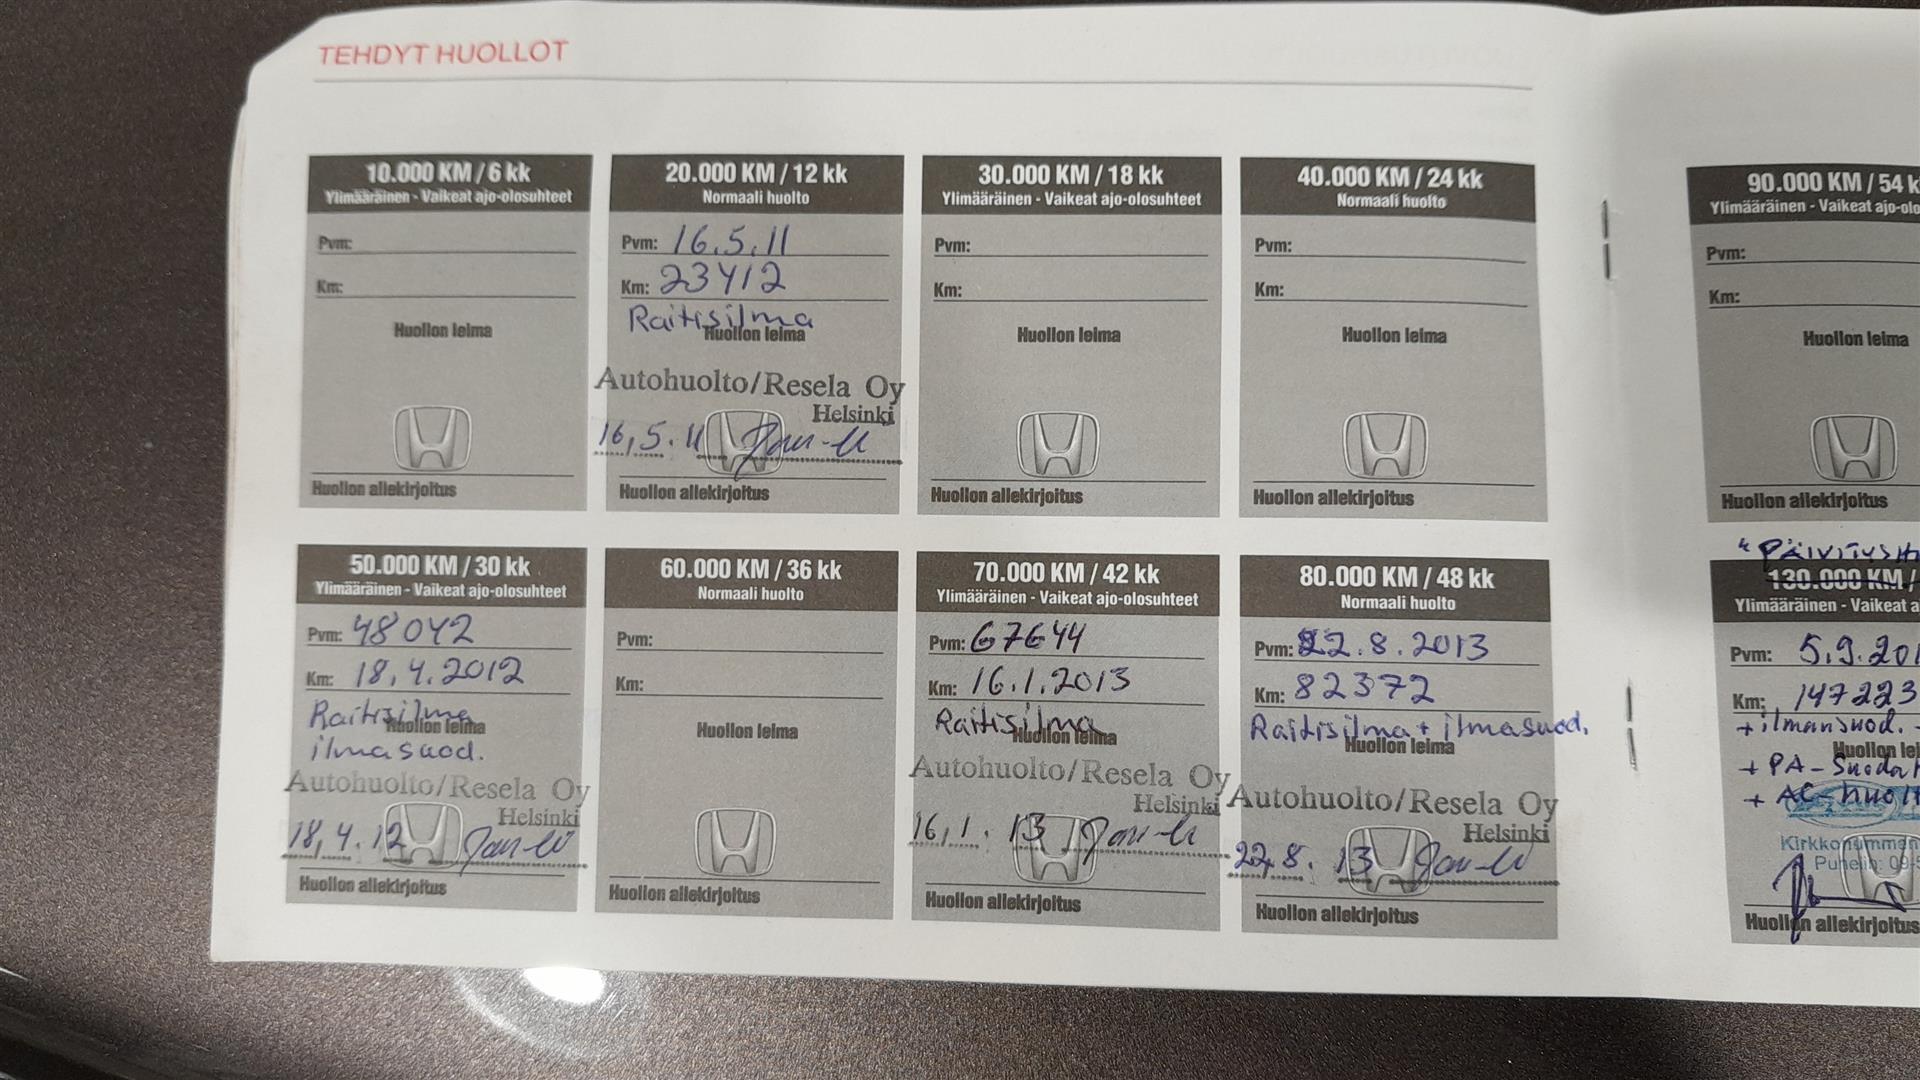 TEHDYT HUOLLOT
10.000 KM / 6 kk
Ylimääräinen - Vaikeat ajo-olosuhteet
Pvm:
Km:
Huollon leima
Huollon allekirjoitus
20.000 KM / 12 kk
Normaali huolto
Pvm: 16.5.11
Km: 23412
Raitisilma
Huollon leima
Autohuolto/Resela Oy
Helsinki
16.5.11
Huollon allekirjoitus
30.000 KM / 18 kk
Ylimääräinen - Vaikeat ajo-olosuhteet
Pvm:
Km:
Huollon leima
Huollon allekirjoitus
40.000 KM / 24 kk
Normaali huolto
Pvm:
Km:
Huollon leima
Huollon allekirjoitus
50.000 KM / 30 kk
Ylimääräinen - Vaikeat ajo-olosuhteet
Pvm: 48042
Km: 18.4.2012
Raitisilma
Huollon leima
ilmasuod.
Autohuolto/Resela Oy
Helsinki
18.4.12
Huollon allekirjoitus
60.000 KM / 36 kk
Normaali huolto
Pvm:
Km:
Huollon leima
Huollon allekirjoitus
70.000 KM / 42 kk
Ylimääräinen - Vaikeat ajo-olosuhteet
Pvm: 67644
Km: 16.1.2013
Raitisilma
Huollon leima
Autohuolto/Resela Oy
Helsinki
16.1.13
Huollon allekirjoitus
80.000 KM / 48 kk
Normaali huolto
Pvm: 22.8.2013
Km: 82372
Raitisilma + ilmasuod.
Huollon leima
Autohuolto/Resela Oy
Helsinki
22.8.13
Huollon allekirjoitus
90.000 KM / 54 k
Ylimääräinen - Vaikeat ajo-olo
Pvm:
Km:
Huollon leima
Huollon allekirjoitus
130.000 KM /
Ylimääräinen - Vaikeat a
Pvm: 5.9.201
Km: 147223
+ ilmansuod.
Huollon lei
+ PA-Suodat
+ AC-huolt
Kirkkonummen
Puhelin: 09-5
Huollon allekirjoitus